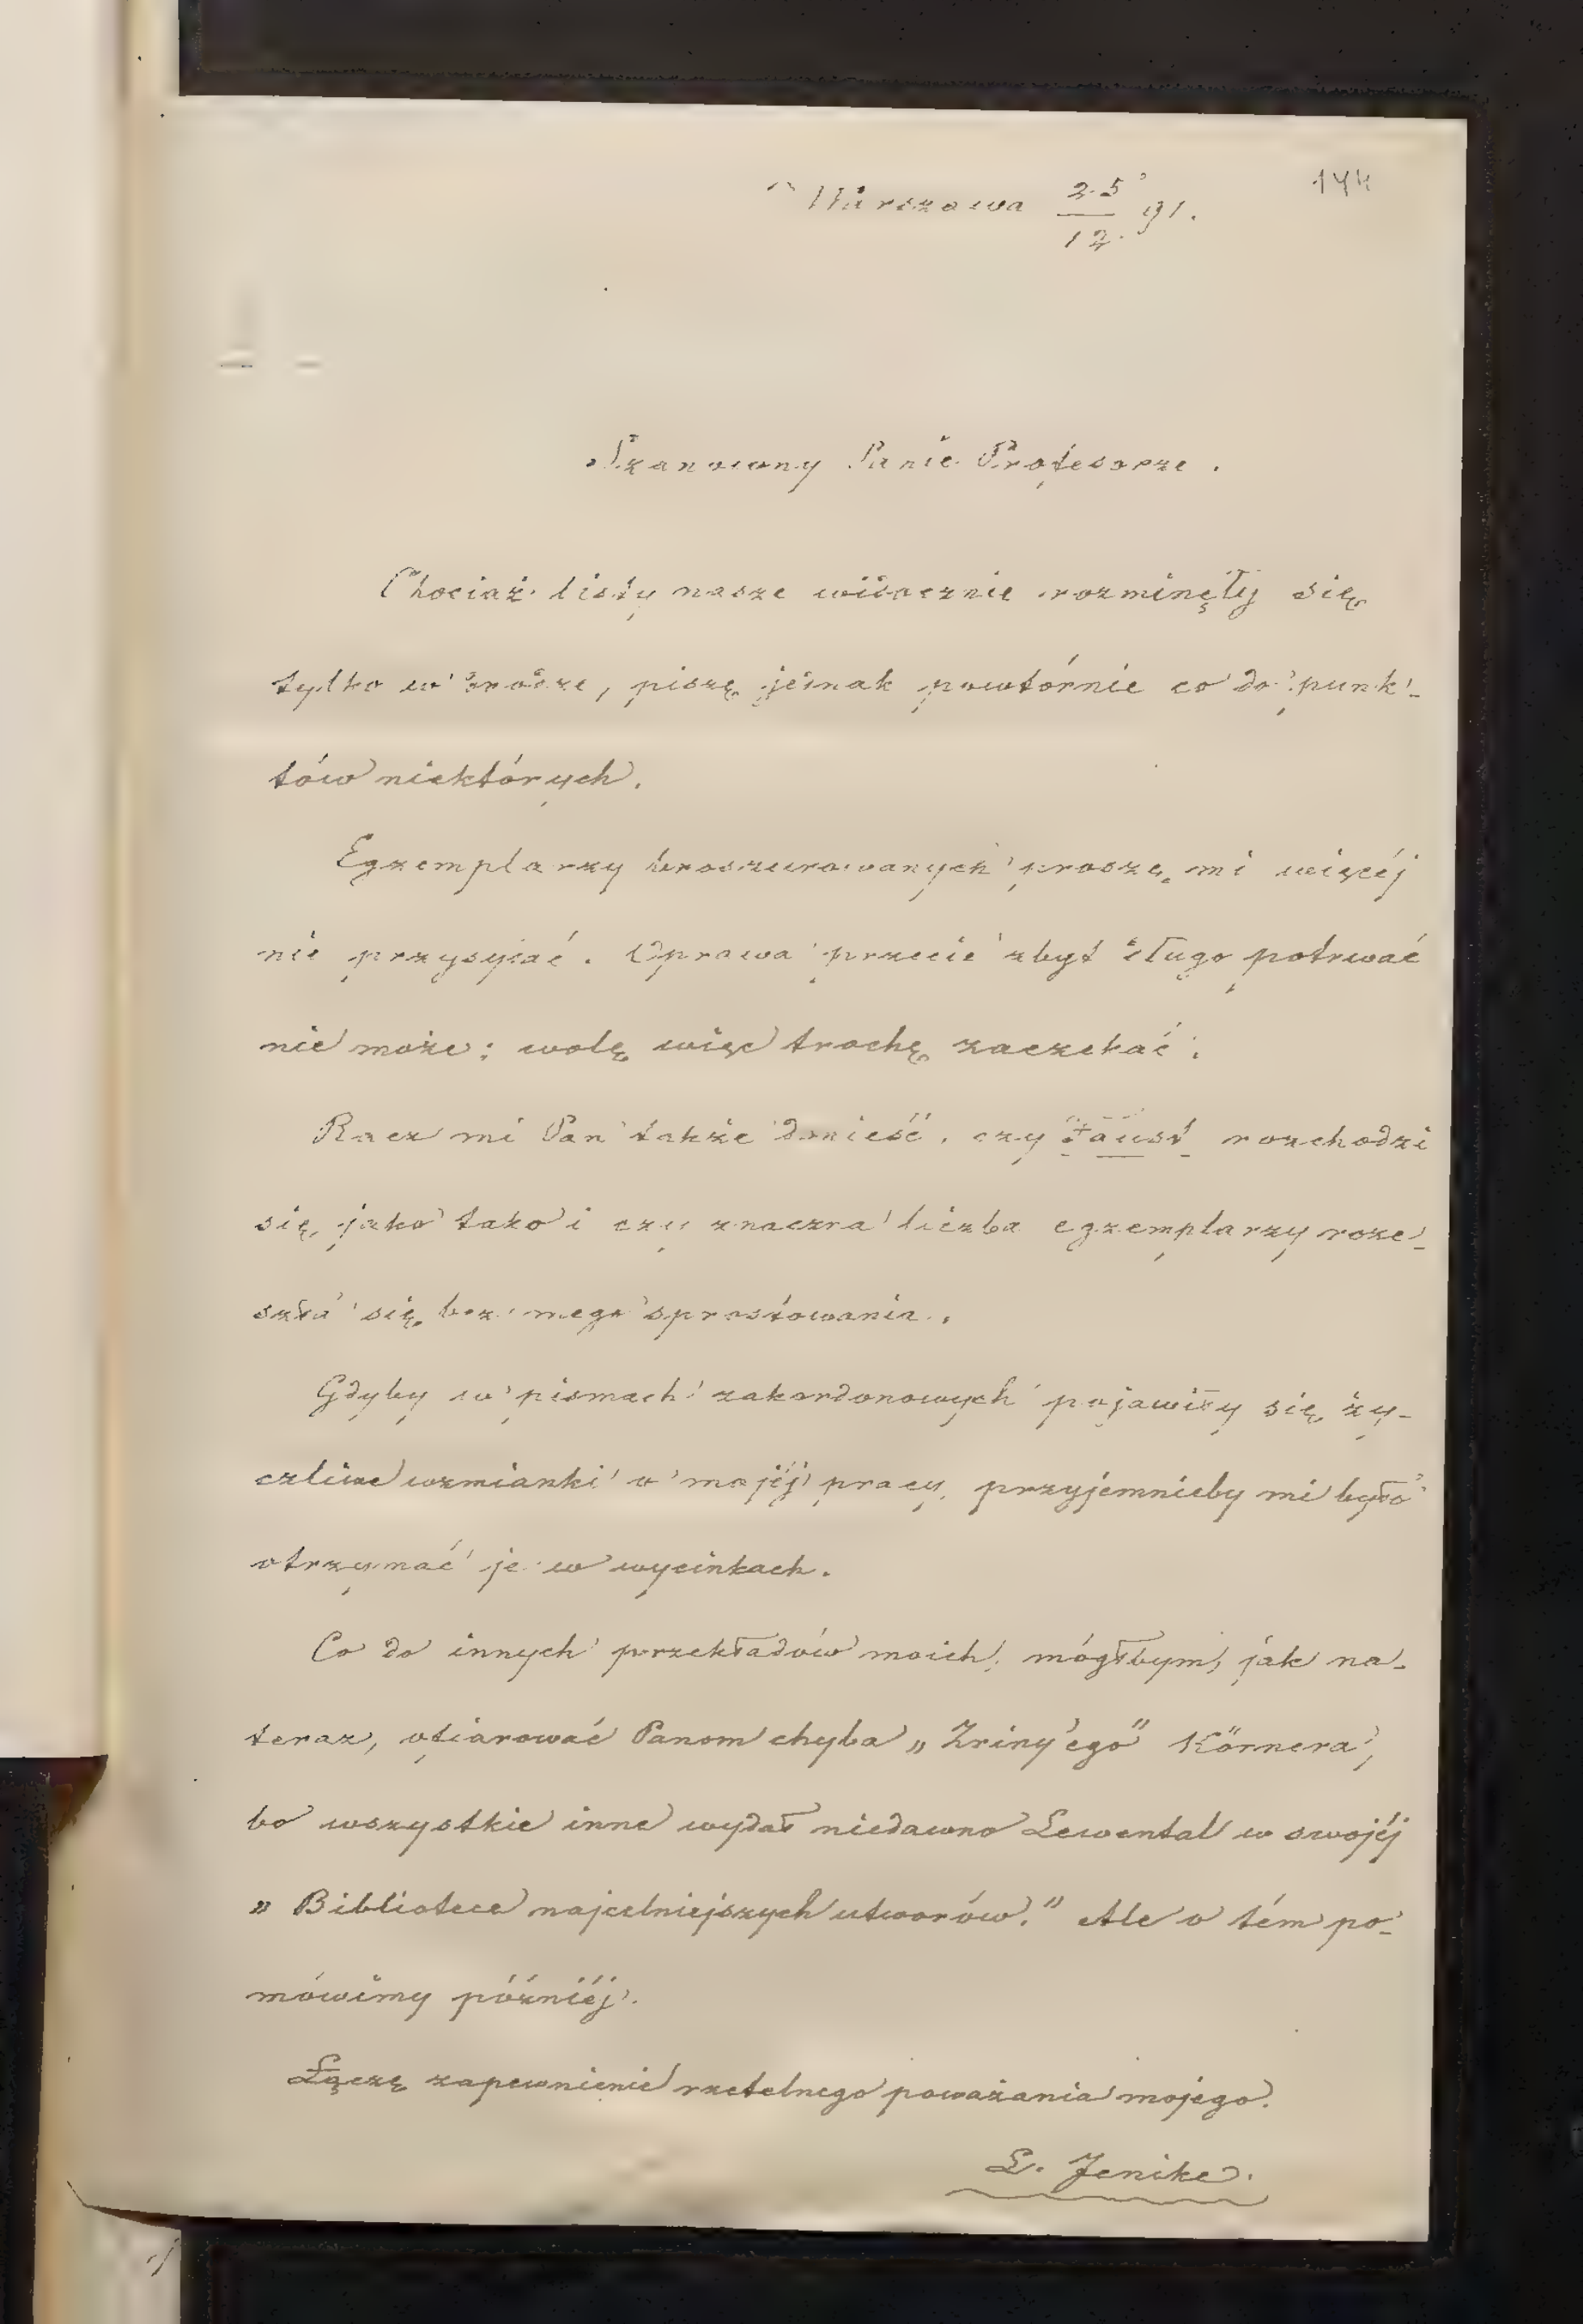 Warszawa 25/12 91.
144
Szanowny Panie Profesorze.
Chociaż listy nasze widocznie rozminęły się
tylko w drodze, piszę jednak powtórnie co do punk-
tów niektórych.
Egzemplarzy broszurowanych proszę mi więcéj
nie przysyłać. Oprawa przecie zbyt długo potrwać
nie może; wolę więc trochę zaczekać.
Racz mi Pan także donieść, czy Faust rozchodzi
się jako tako i czy znaczna liczba egzemplarzy roze-
szła się bez mego sprostowania.
Gdyby w pismach zakordonowych pojawiły się ży-
czliwe wzmianki o mojéj pracy, przyjemnieby mi było
otrzymać je w wycinkach.
Co do innych przekładów moich, mógłbym, jak na-
teraz, ofiarować Panom chyba „Zriny'ego" Körnera,
bo wszystkie inne wydał niedawno Lewental w swojéj
„Bibliotece najcelniejszych utworów." Ale o tém po-
mówimy późniéj.
Łączę zapewnienie rzetelnego poważania mojego.
L. Jenike.